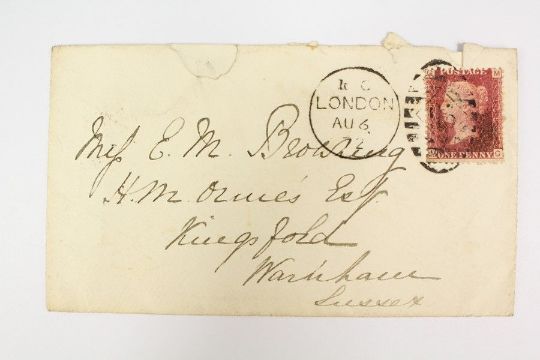 POSTAGE
ONE PENNY
LONDON
AU 6
72
Miss E. M. Browning
H. M. Ormes Esq
Kingsfold
Warnham
Sussex